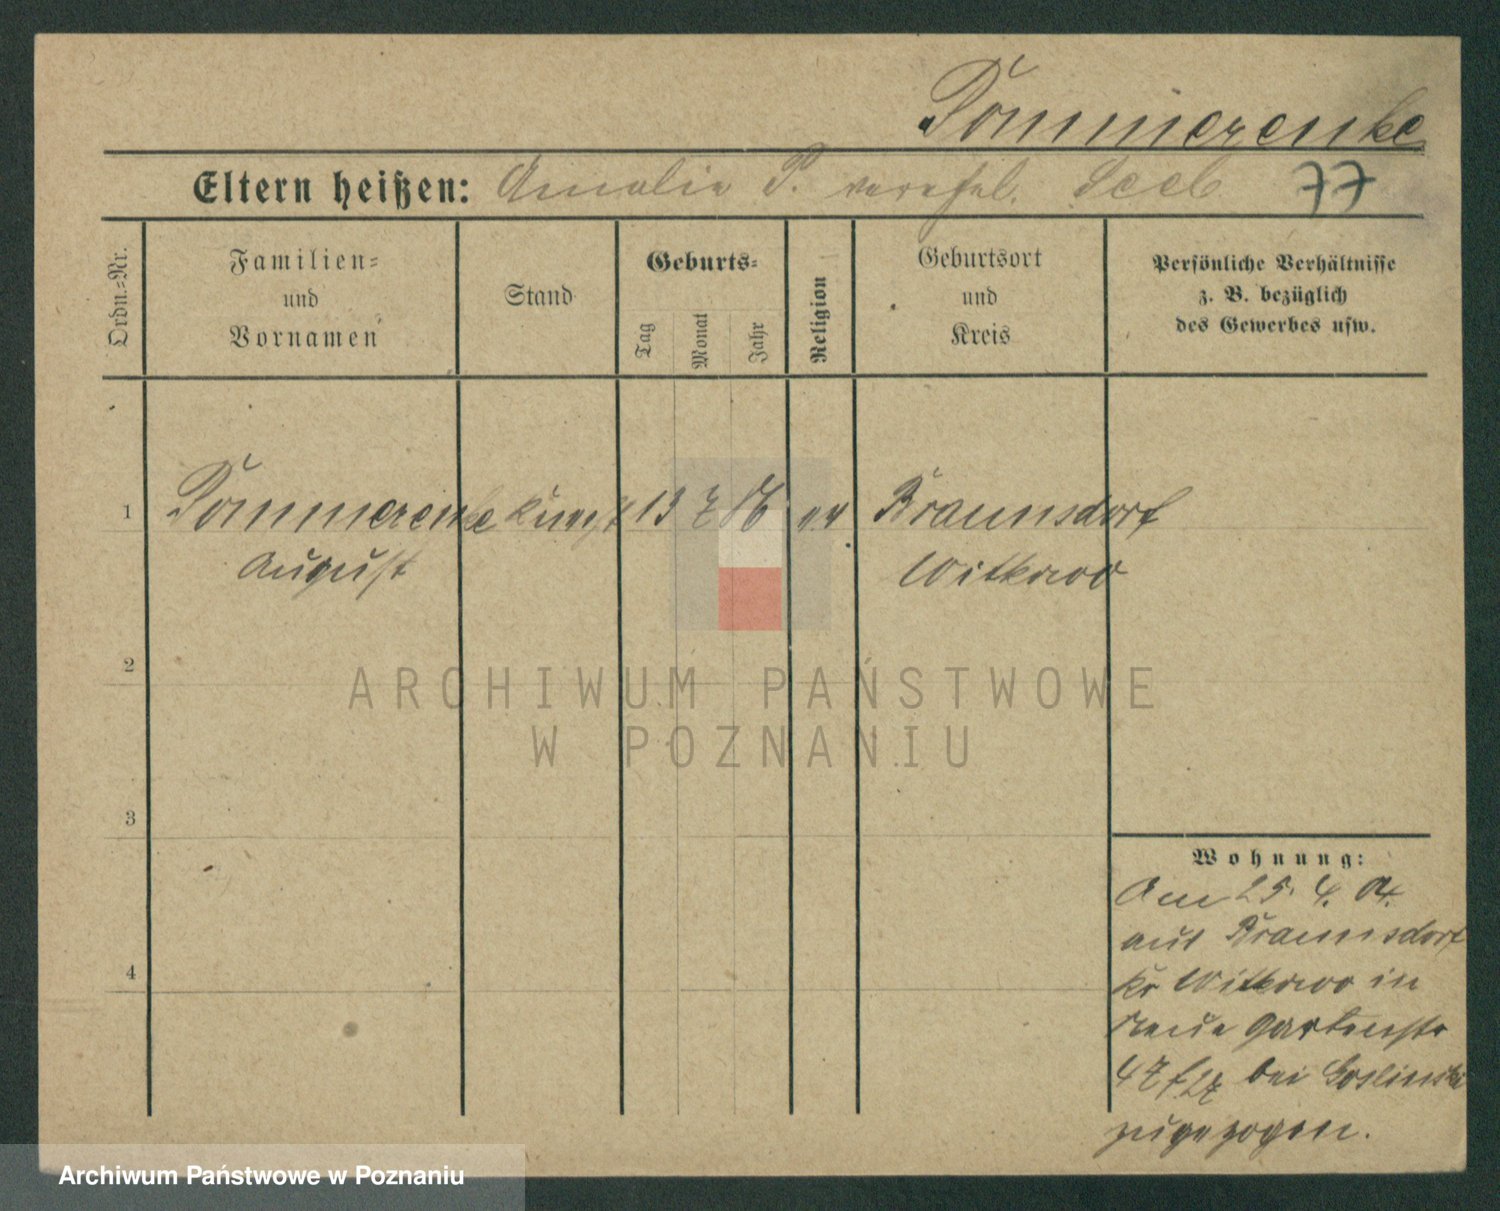 Pommerenke
Eltern heißen: Amalie P. verehel. Seeb 77
Ordn.-Nr.
Familien-
und
Vornamen
Stand
Geburts-
Tag
Monat
Jahr
Religion
Geburtsort
und
Kreis
Persönliche Verhältnisse
z. B. bezüglich
des Gewerbes usw.
1 Pommerenke 13 7 86 ev Braunsdorf
August Witkowo
2
ARCHIWUM PAŃSTWOWE
W POZNANIU
3
Wohnung:
Am 25. 4. 04.
aus Braunsdorf
Kr Witkowo in
4
Neue Gartenstr
bei Goslinski
zugezogen.
Archiwum Państwowe w Poznaniu